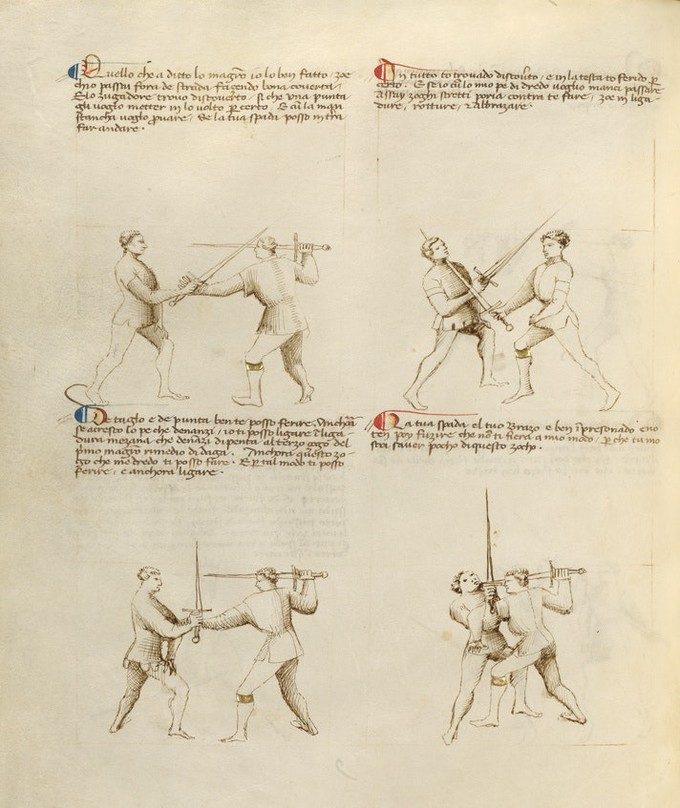 Quello che a ditto lo magro io lo ben fatto, zoe
chio passai fora de strada fazendo bona coverta,
E lo zugadore trovo discoverto, si che una punta
gli voglio metter in lo volto per certo. E cum la man
stancha voglio provare, se la tua spada posso in tera
far andare.
In tutto to trovado discoverto, e in la testa to ferido per
certo. E se io cum lo mio pe di dredo voglio inanci passare
Assay zoghi stretti poria contra te fare, zoe in liga-
dure, rotture, e abbrazare.
De taglo e de punta ben te posso ferire. Anchora
se acresco lo pe che denanzi, io ti posso ligare in liga
dura mezana che denanzi dipenta, al terzo zogo del
primo magistro rimedio di daga. Anchora questo zo-
go che me dredo ti posso fare. E per tal modo ti posso
ferire, e anchora ligare.
La tua spada e 'l tuo brazo e ben impresonado e no
ten poy fuzire che non ti fiera a mio modo, per che tu mo-
stri saver pocho di questo zocho.